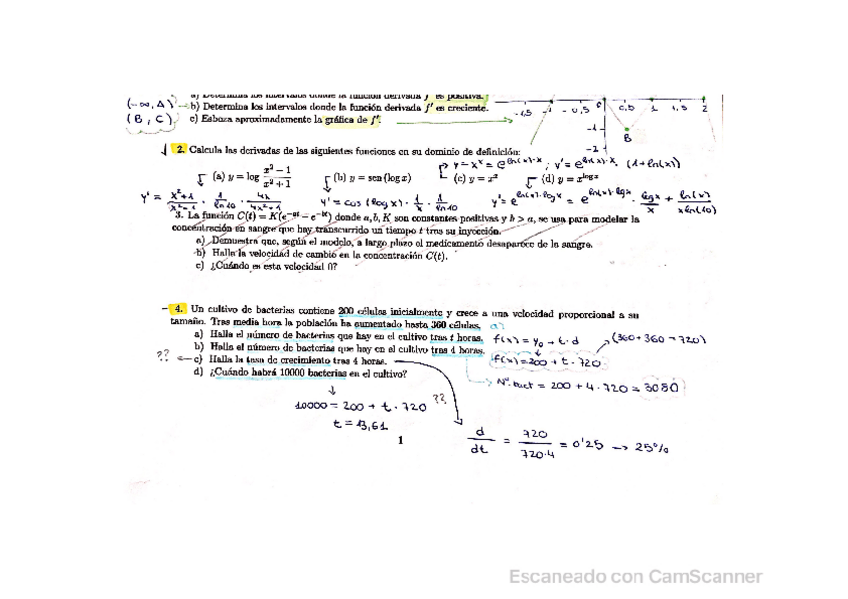 a) Determina los intervalos donde la función derivada f' es positiva.
(-∞, A) → b) Determina los intervalos donde la función derivada f' es creciente.
(B, C) c) Esboza aproximadamente la gráfica de f'.
-1,5 -1 -0,5 0 0,5 1 1,5 2
-1
B
-2
2. Calcula las derivadas de las siguientes funciones en su dominio de definición:
y = x^x = e^{ln(x)·x} ; y' = e^{ln(x)·x} · (1+ln(x))
(a) y = log (x²-1)/(x²+1) (b) y = sen(log x) (c) y = x^x (d) y = x^{log x}
y' = (x²+1)/(x²-1) · 1/ln10 · 4x/
y' = cos(log x) · 1/x · 1/ln10
y' = e^{ln(x)·log x} = e^{ln(x)·log x} · log x/x + ln(x)/(x ln(10))
3. La función C(t) = K(e^{-at} - e^{-bt}) donde a, b, K son constantes positivas y b > a, se usa para modelar la
concentración en sangre que hay transcurrido un tiempo t tras su inyección.
a) Demuestra que, según el modelo, a largo plazo el medicamento desaparece de la sangre.
b) Halla la velocidad de cambio en la concentración C(t).
c) ¿Cuándo es esta velocidad 0?
4. Un cultivo de bacterias contiene 200 células inicialmente y crece a una velocidad proporcional a su
tamaño. Tras media hora la población ha aumentado hasta 360 células. a?
a) Halla el número de bacterias que hay en el cultivo tras t horas. f(x) = y₀ + t·d (360+360=720)
b) Halla el número de bacterias que hay en el cultivo tras 4 horas. f(x) = 200 + t·720
?? ← c) Halla la tasa de crecimiento tras 4 horas.
d) ¿Cuándo habrá 10000 bacterias en el cultivo?
Nº bact = 200 + 4·720 = 3080
10000 = 200 + t·720 ??
t = 13,61
1
d/dt = 720/720·4 = 0'25 → 25%
Escaneado con CamScanner